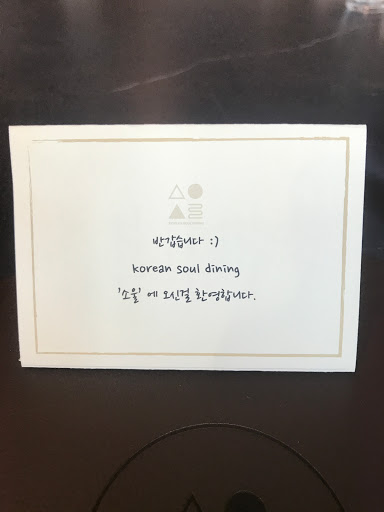 반갑습니다 :)
korean soul dining
'소울' 에 오신걸 환영합니다.